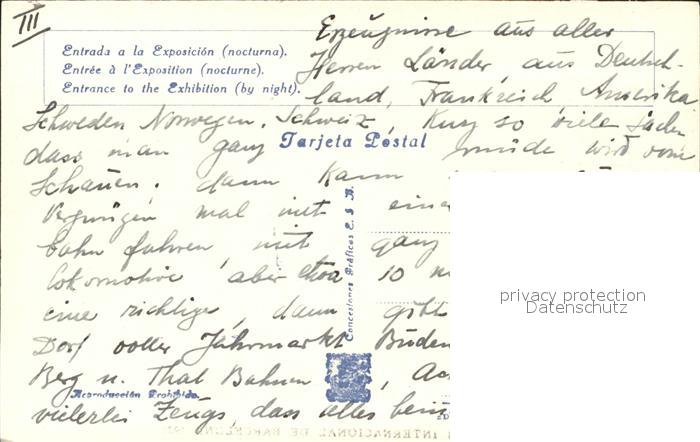 III
Erzeugnisse aus aller
Entrada a la Exposición (nocturna).
Herren Länder, aus Deutsch-
Entrée à l'Exposition (nocturne).
Entrance to the Exhibition (by night).
land, Frankreich Amerika
Schweden Norwegen, Schweiz, Kurz so viele Sachen
dass man ganz müde wird vom
Tarjeta Postal
Schauen. dann kann
Vergnügen mal mit eine
bahn fahren, mit ganz
Lokomotive aber etwa 10 m
eine richtige, dann gibt
Dorf voller Jahrmarkt Buden
Berg u. Thal Bahnen, Ac
vielerlei Zeugs, dass alles beim
Concesiones Gráficas E. S. R.
Reproducción Prohibida.
INTERNACIONAL DE BARCELONA
privacy protection
Datenschutz